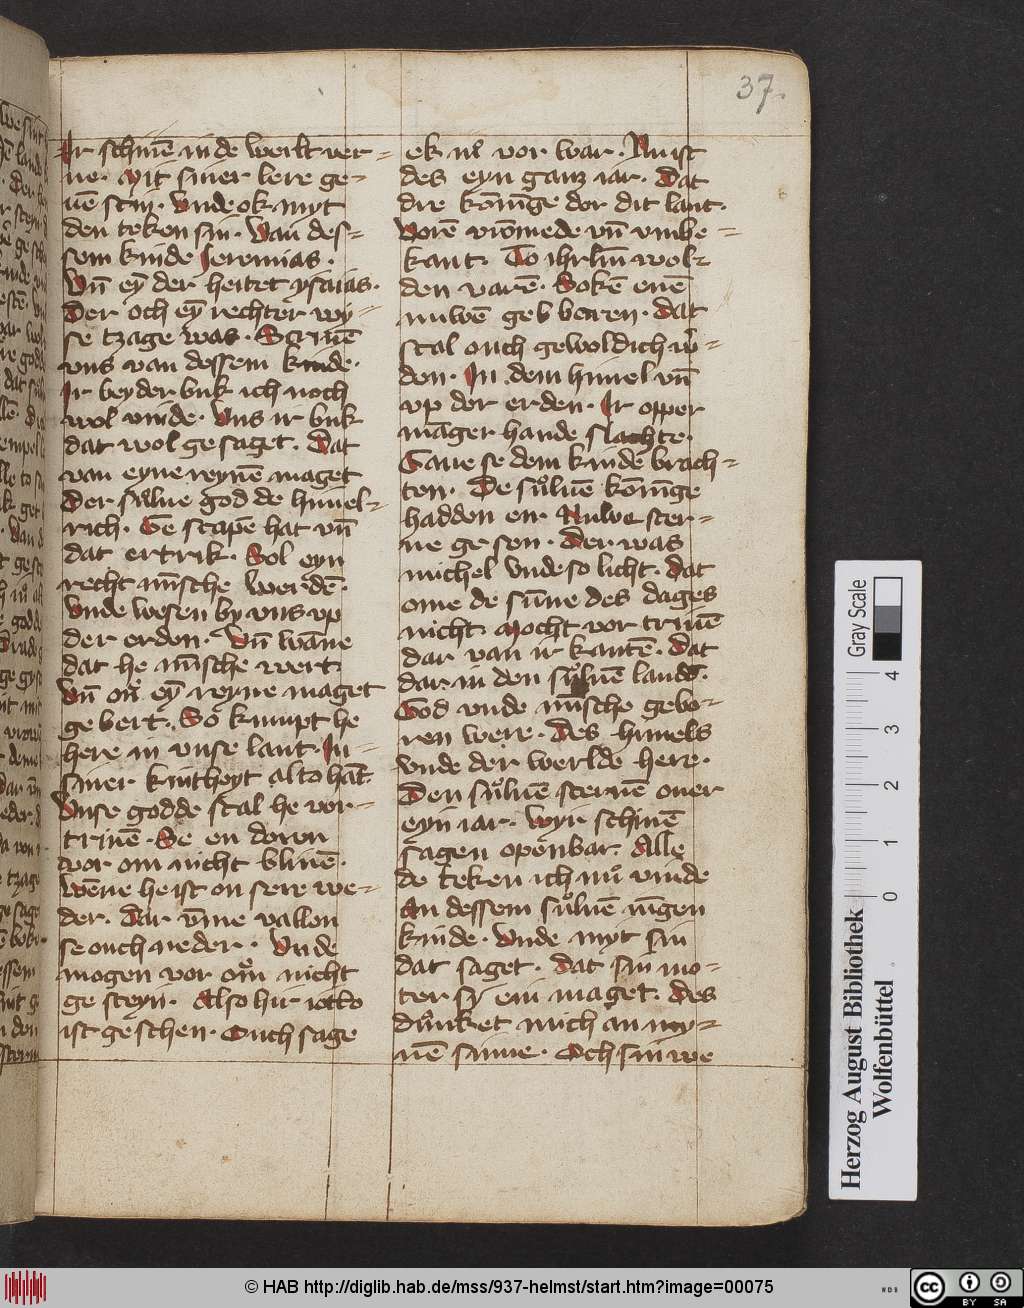 37.
Ir schinē in de werlt ver-
ne. Mit siner lere ge-
uē schin. Unde ok myt
den teken sin. Vau des-
sem kinde Jeremias.
Uñ eȳ der heitet ysaias.
Der och eȳ rechter wy-
se tzage was. Scriuē
vns van dessem kinde.
Ir beyder buk ich noch
wol vinde. Uns ir buk
dat wol ge saget. Dat
van eyne reynē maget
Der sulue god de himel-
rich. Ge scapē hat uñ
dat ertrik. Sol eyn
recht mīsche werdē.
Unde wesen by vns vp
der erden. Uñ wāne
dat he mīsche wert
Uñ on eȳ reyne maget
ge bert. So kumpt he
here in vnse lant. In-
siner kintheyt alto hāt
Unse godde scal he vor-
triuē. Se en doren
vor om nicht bliuē.
Wēne he ist on sere we-
der. Dar vme vallen
se ouch neder. Unde
mogen vor om nicht
ge steyn. Also hir
ist ge schen. Ouch sage
ek vor war. Nu ist
des eyn ganz iar. Dat
dre konīge der dit lant.
Worē vromede vñ vnbe-
kant. To ihrlm wol-
den varē. Sokē enē
nuwē geb beren. Dat
scal ouch geweldich w-
den. In dem himel vñ
vp der erden. Ir opper
māger hande slachte.
Gaue se dem kinde brach-
ten. De suluē konīge
hadden en. Nuwe ster-
ne ge sen. Der was
michel vnde so licht. Dat
ome de sūne des dages
nicht. Mocht vor triuē
dar van ir kantē. Dat
dar in den suluē lande.
God vnde mīsche gebo-
ren were. Des himels
vnde der werlde here.
Den suluē sternē ouer
eyn iar. Wyr schinē
sagen openbar. Alle
de teken ich nu vinde
An dessem suluē iūgen
kinde. Unde myt sin
dat saget. Dat sin mo-
ter si ein maget. Des
dunket mich an my-
nē sinne. Och sin we
Herzog August Bibliothek
Wolfenbüttel
Gray Scale
0 1 2 3 4
© HAB http://diglib.hab.de/mss/937-helmst/start.htm?image=00075
WDB
cc BY SA